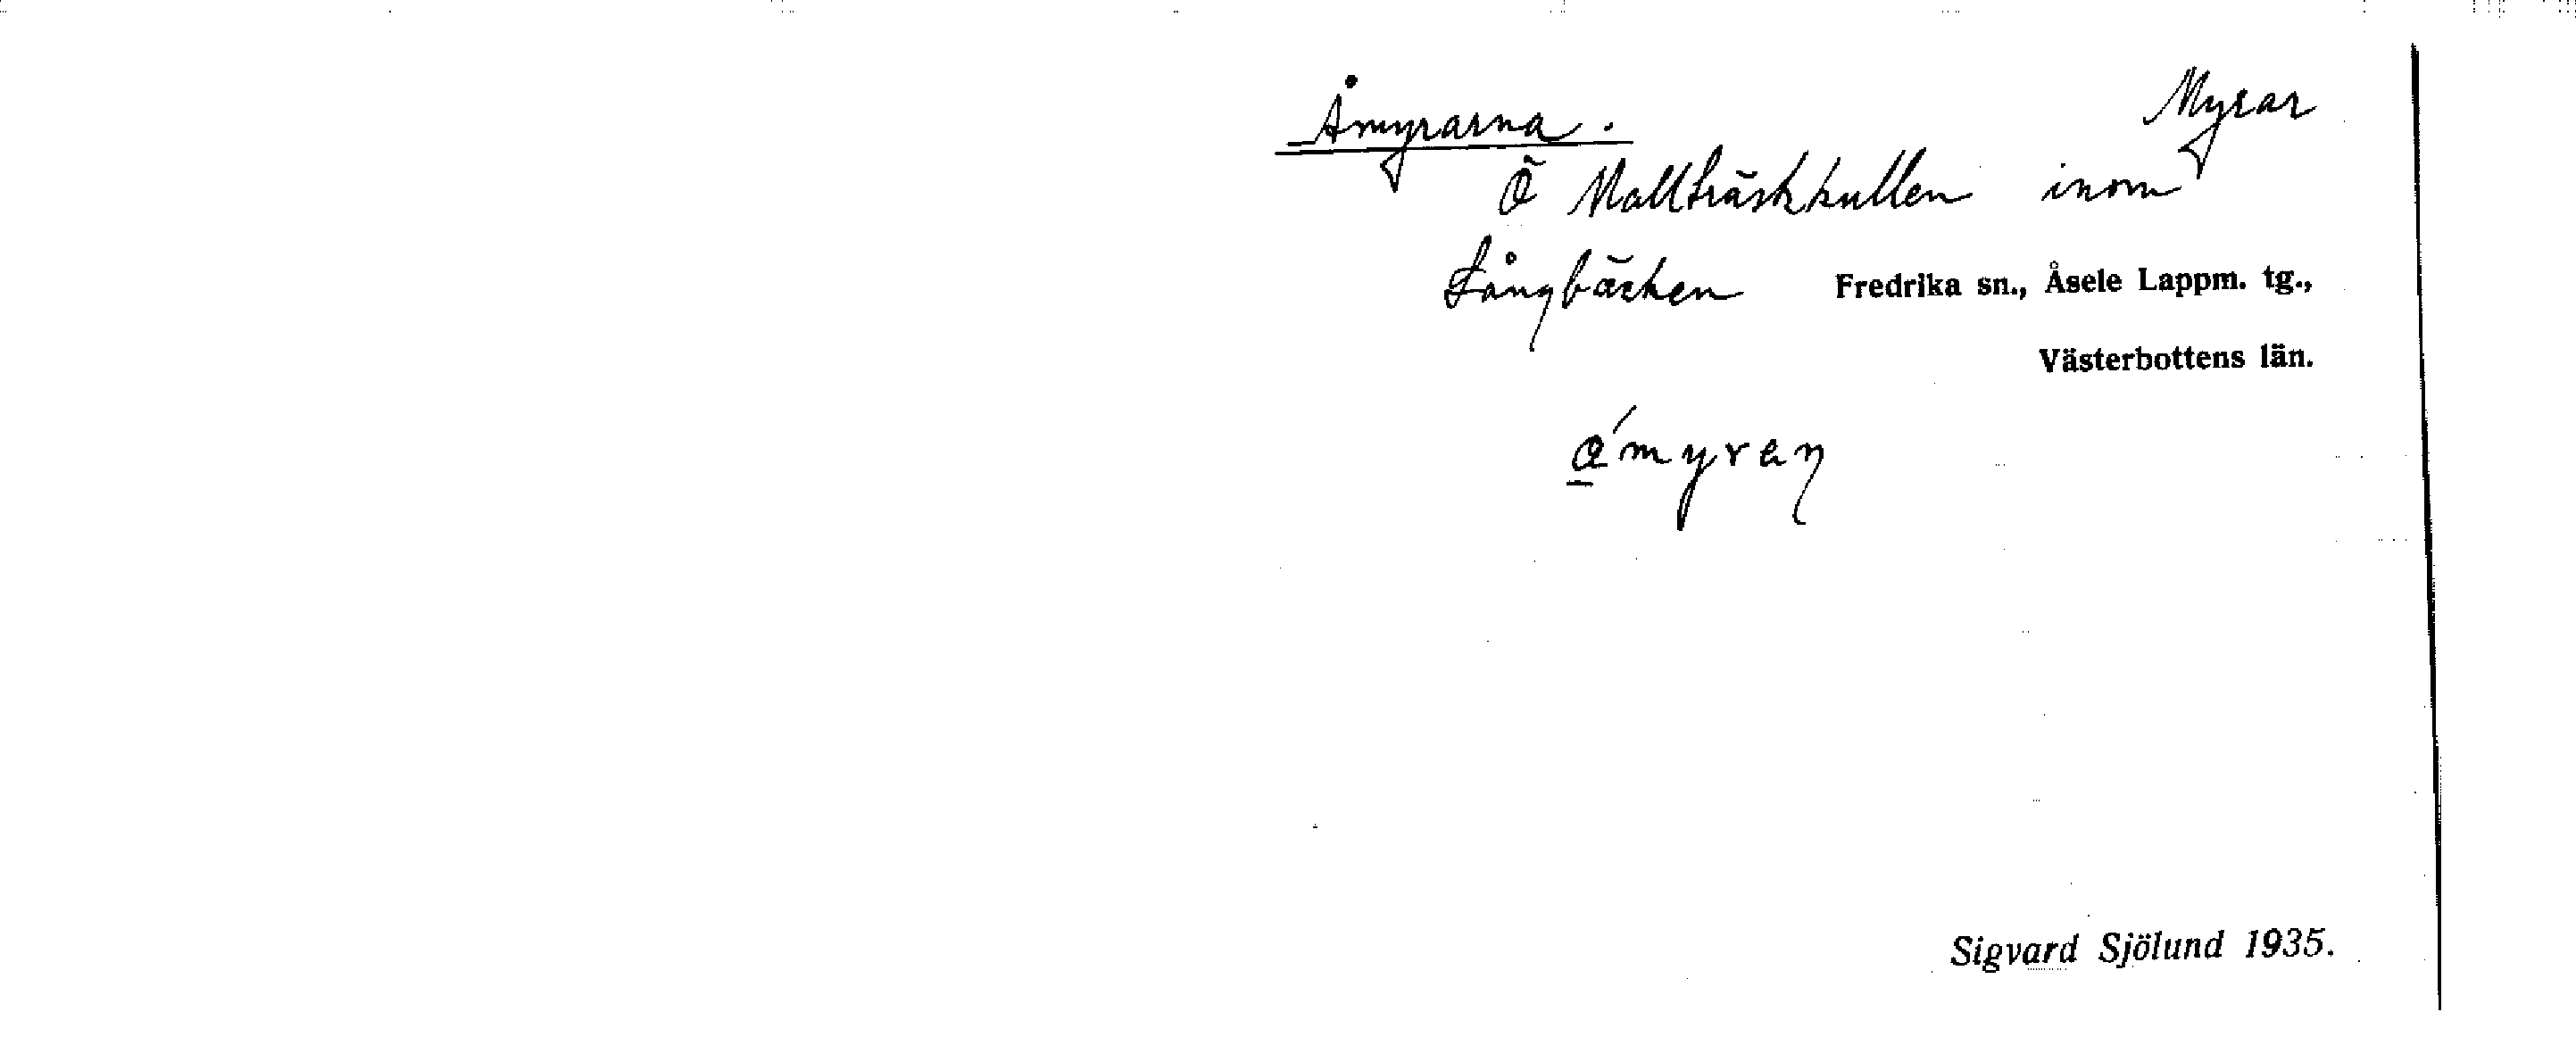 Åmyrarna. Myrar
Ö Mallträskkullen inom
Långbäcken Fredrika sn., Åsele Lappm. tg.,
Västerbottens län.
Sigvard Sjölund 1935.